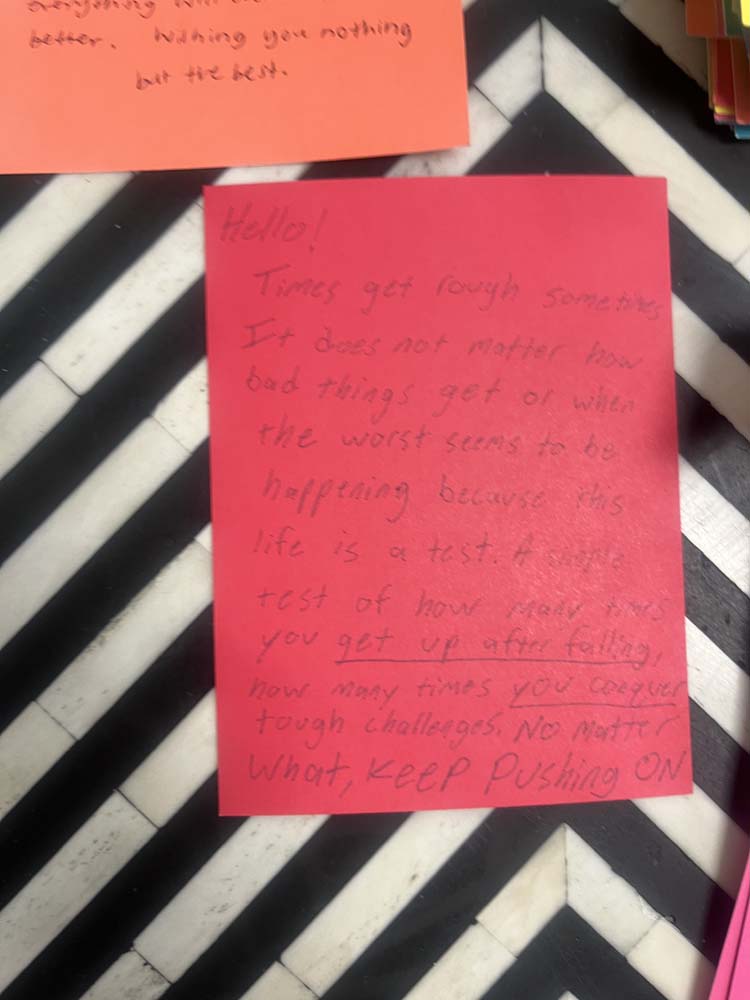 everything will
better. Wishing you nothing
but the best.
Hello!
Times get rough sometimes
It does not matter how
bad things get or when
the worst seems to be
happening because this
life is a test. A simple
test of how many times
you get up after falling,
how many times you conquer
tough challenges. No matter
What, KEEP Pushing ON